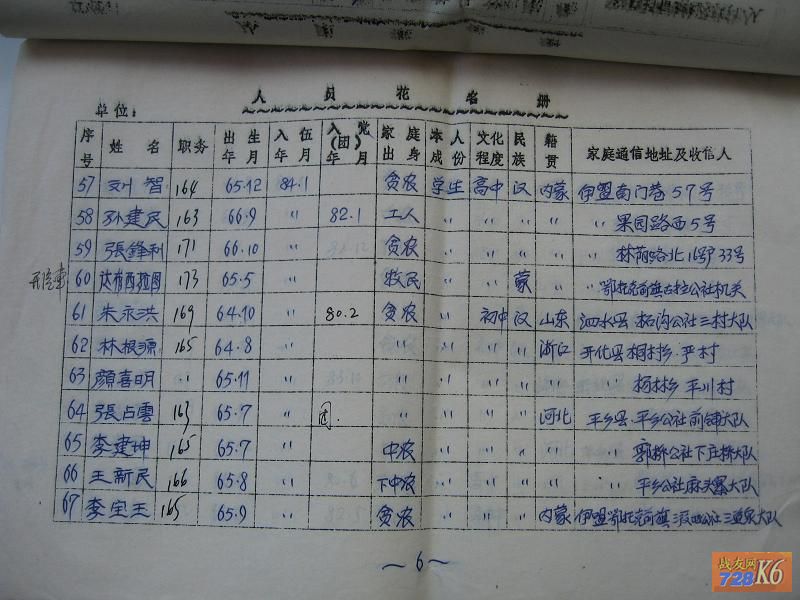 人 员 花 名 册
单位：
序号 姓 名 职务 出 生 年 月 入 伍 年 月 入 党 (团) 年 月 家 庭 出 身 本 人 成 份 文化程度 民族 籍贯 家庭通信地址及收信人
57 刘智 164 65.12 84.1 贫农 学生 高中 汉 内蒙 伊盟南门巷57号
58 孙建民 163 66.9 〃 82.1 工人 〃 〃 〃 〃 〃 果园路西5号
59 張鋒利 171 66.10 〃 贫农 〃 〃 〃 〃 〃 林荫路北 33号
60 达布西拉图 173 65.5 〃 牧民 〃 〃 蒙 〃 〃 鄂托克前旗 公社机关
61 朱永洪 169 64.10 〃 80.2 贫农 〃 初中 汉 山东 泗水县 柘沟公社三村大队
62 林根源 165 64.8 〃 〃 〃 〃 〃 浙江 开化县 桐村乡 严村
63 顏喜明 〃 65.11 〃 〃 〃 〃 〃 〃 〃 杨林乡 平川村
64 張占雲 163 65.7 〃 团. 〃 〃 〃 〃 河北 平乡县 平乡公社前铺大队
65 李建坤 165 65.7 〃 中农 〃 〃 〃 〃 〃 郭桥公社下庄桥大队
66 王新民 166 65.8 〃 下中农 〃 〃 〃 〃 〃 平乡公社 大队
67 李宝玉 165 65.9 〃 贫农 〃 〃 〃 内蒙 伊盟鄂托克前旗 公社 三道泉大队
～6～
战友网
728K6